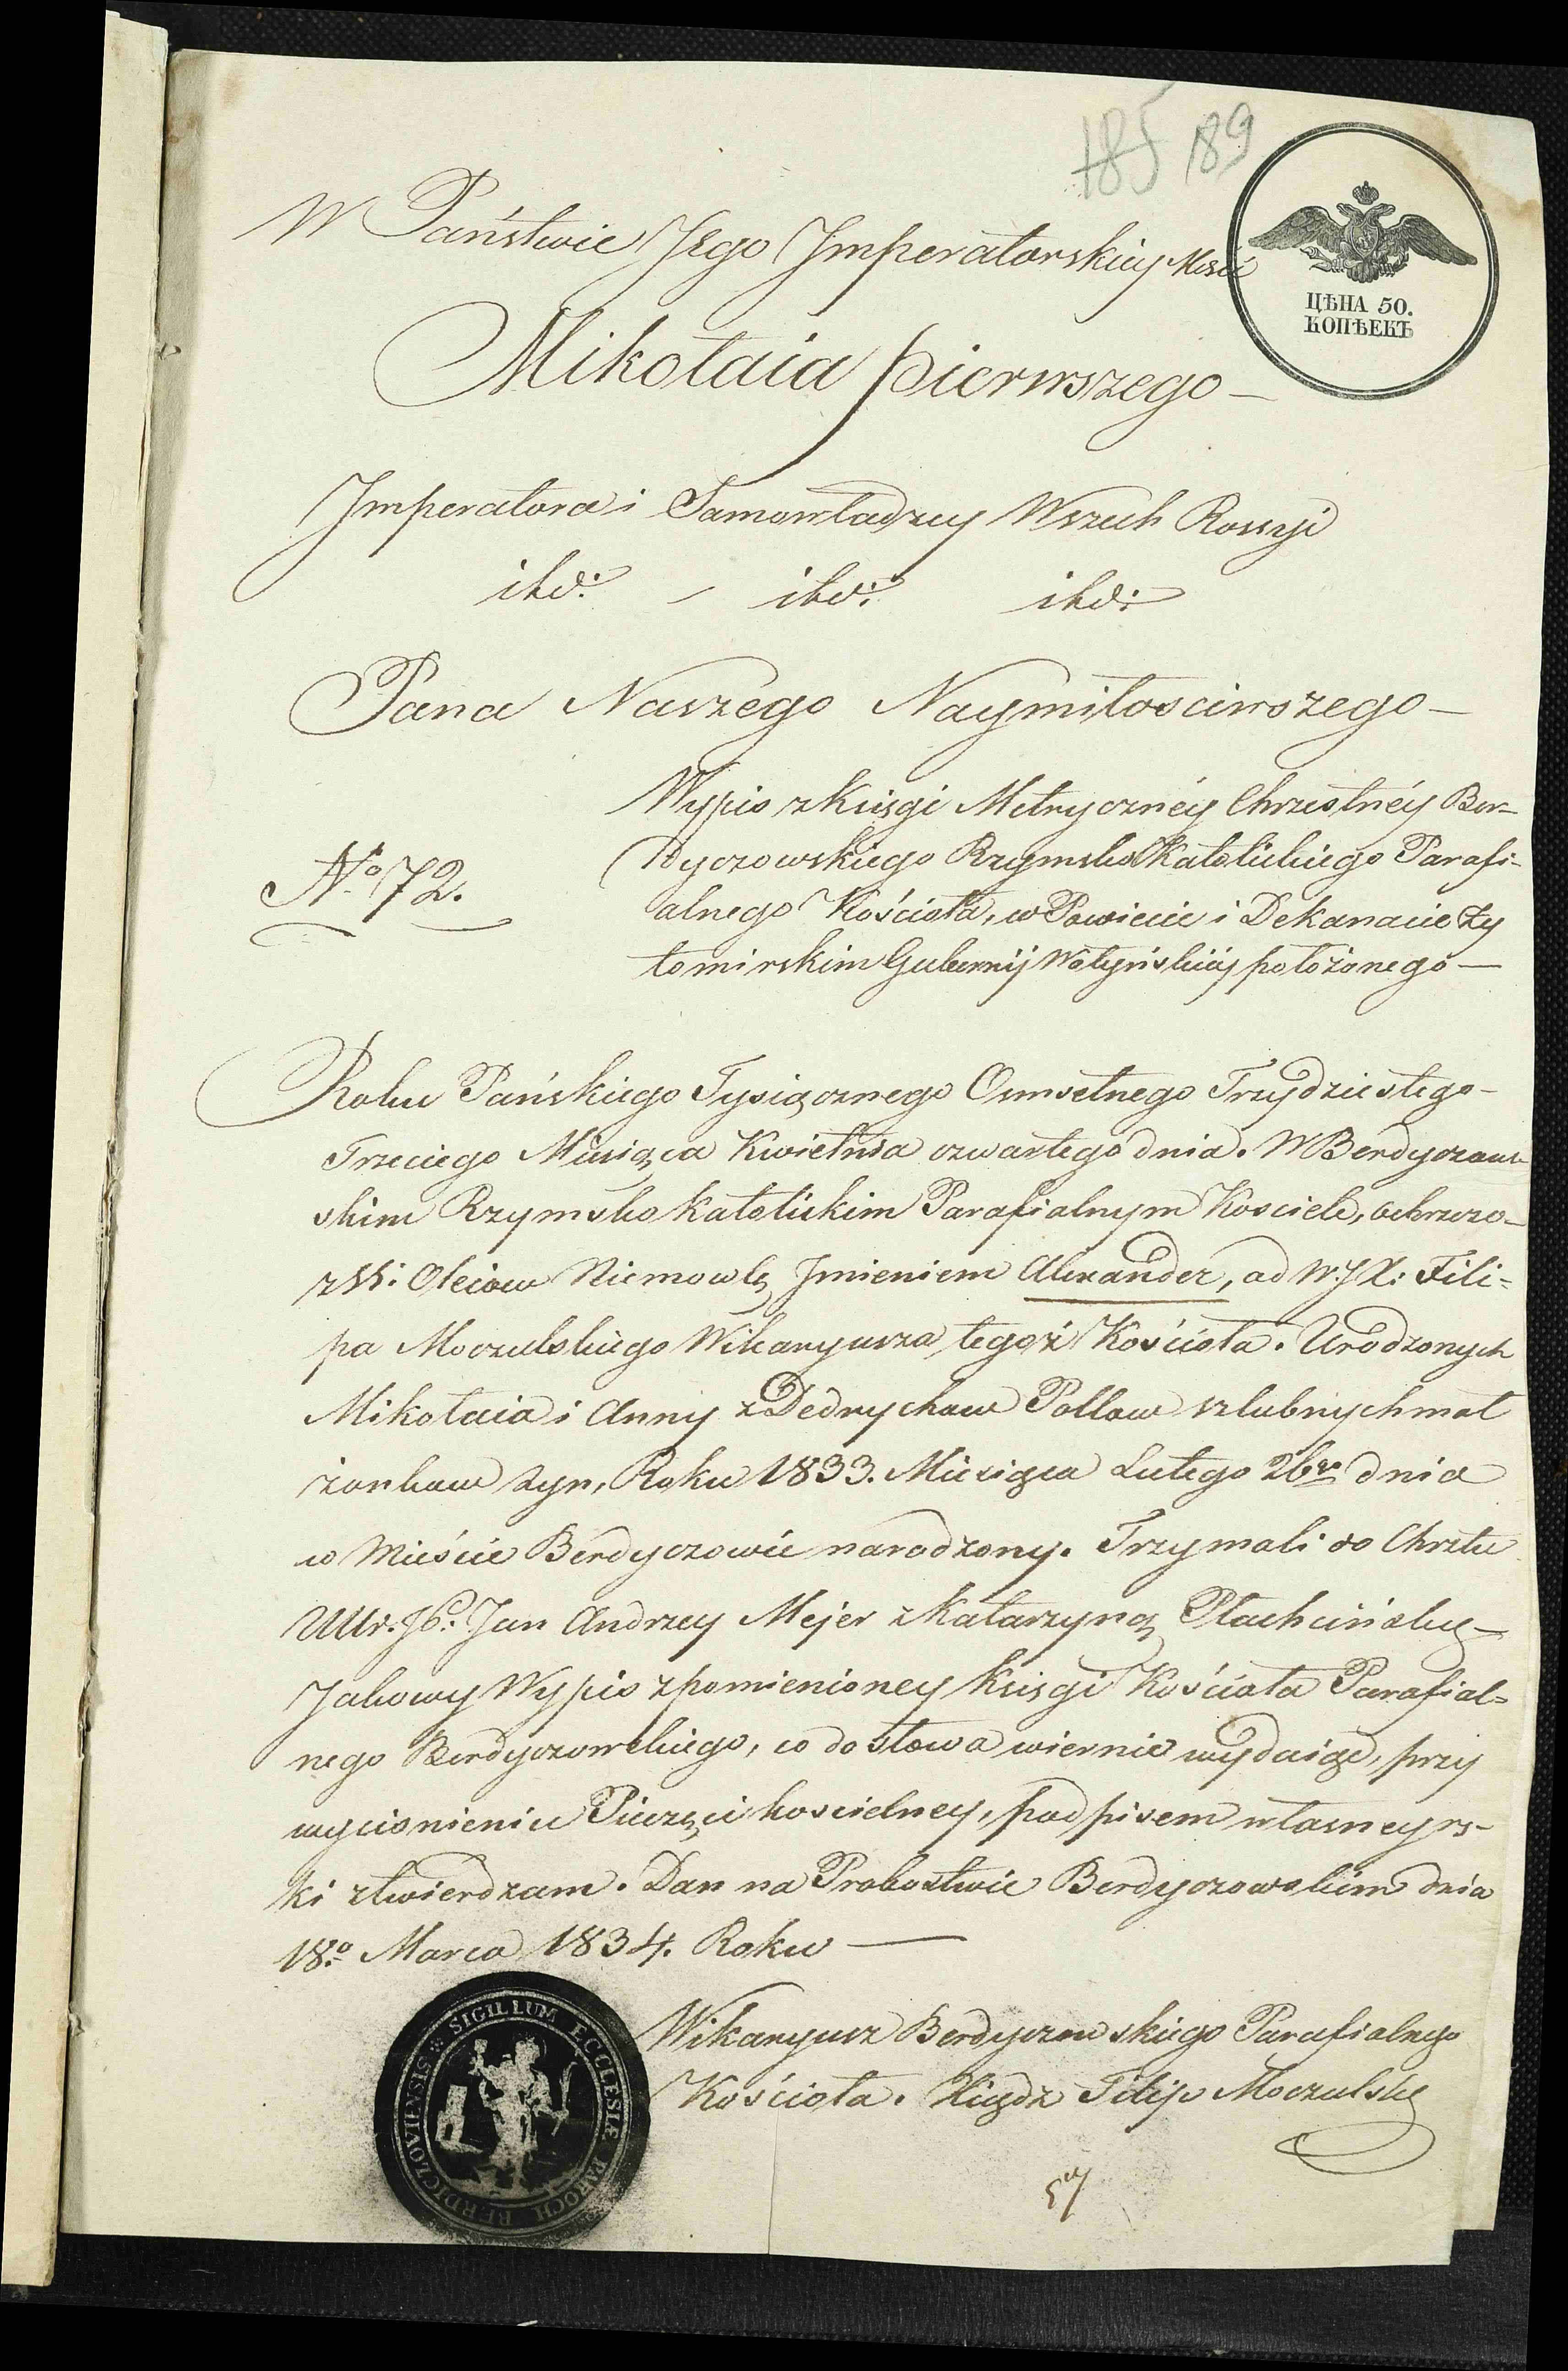 185 189
W Państwie Jego Imperatorskiey Mości
ЦѢНА 50.
КОПѢЕКЪ
Mikołaia pierwszego —
Imperatora i Samowładzcy Wszech Rossyi
itd: - itd: itd:
Pana Naszego Naymiłosciwszego —
Wypis z Księgi Metryczney Chrzestnéy Ber-
dyczowskiego Rzymsko Katolickiego Parafi-
N.o 72.
alnego Kościoła, w Powiecie i Dekanacie Ży
tomirskim Gubernij Wołyńskiéy położonego —
Roku Pańskiego Tysiącznego Osmsetnego Trzydziestego-
Trzeciego Miesiąca Kwietnia czwartego dnia. W Berdyczow-
skim Rzymsko Katolickim Parafialnym Kosciele, ochrzczo-
z SS: Oleiow Niemowlę Imieniem Alexander, od W.J.X: Fili=
pa Moczulskiego Wikaryusza tegoż Kościoła. Urodzonych
Mikołaia i Anny z Dedrychow Pollow szlubnych mał
żonkow syn, Roku 1833. Miesiąca Lutego 26go dnia
w Mieście Berdyczowie narodzony. Trzymali do Chrztu
Jan Andrzey Mejer z Katarzyną Płachcińską
Jakowy Wypis z pomienioney Księgi Kościoła Parafial=
nego Berdyczowskiego, co do słowa wiernie wydaiąc, przy
wyciśnieniu Pieczęci koscielney, podpisem własney rę-
ki ztwierdzam. Dan na Probostwie Berdyczowskim dnia
18.o Marca 1834. Roku —
SIGILLUM ECCLESIÆ PAROCH BERDICZOVIENSIS
Wikaryusz Berdyczowskiego Parafialnego
Kościoła. Xiądz Filip Moczulski